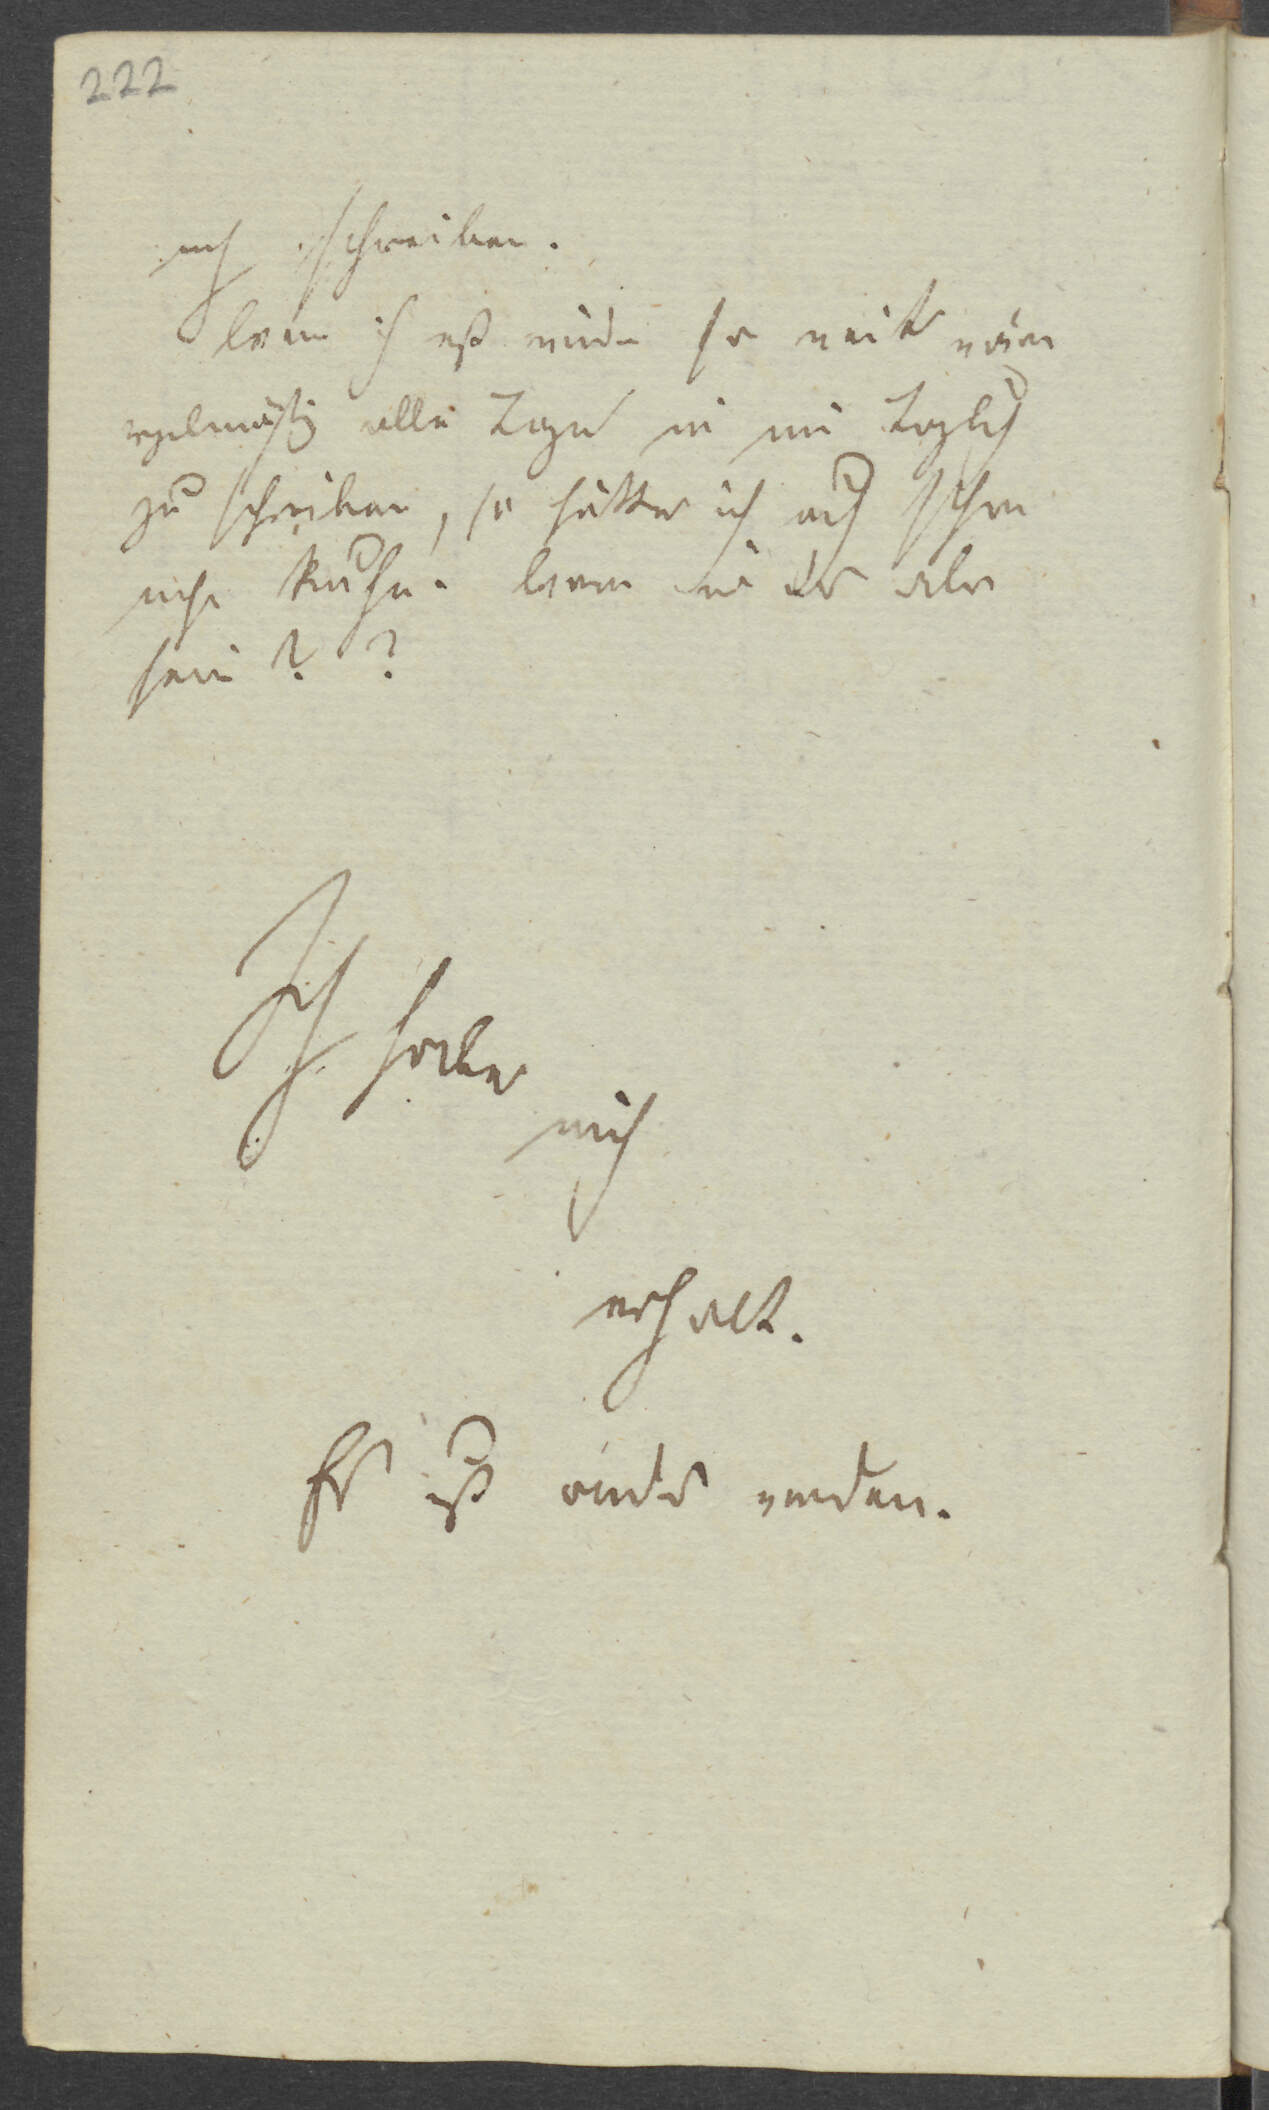 222
auch schreiben.
Wenn ich erst wieder so weit wäre
regelmäßig alle Tage in mein Tagbuch
zu schreiben, so hätte ich auch schon
mehr Ruhe. Wann wird das aber
sein? ?
Ich habe
mich
erhält.
Es ist anders worden.